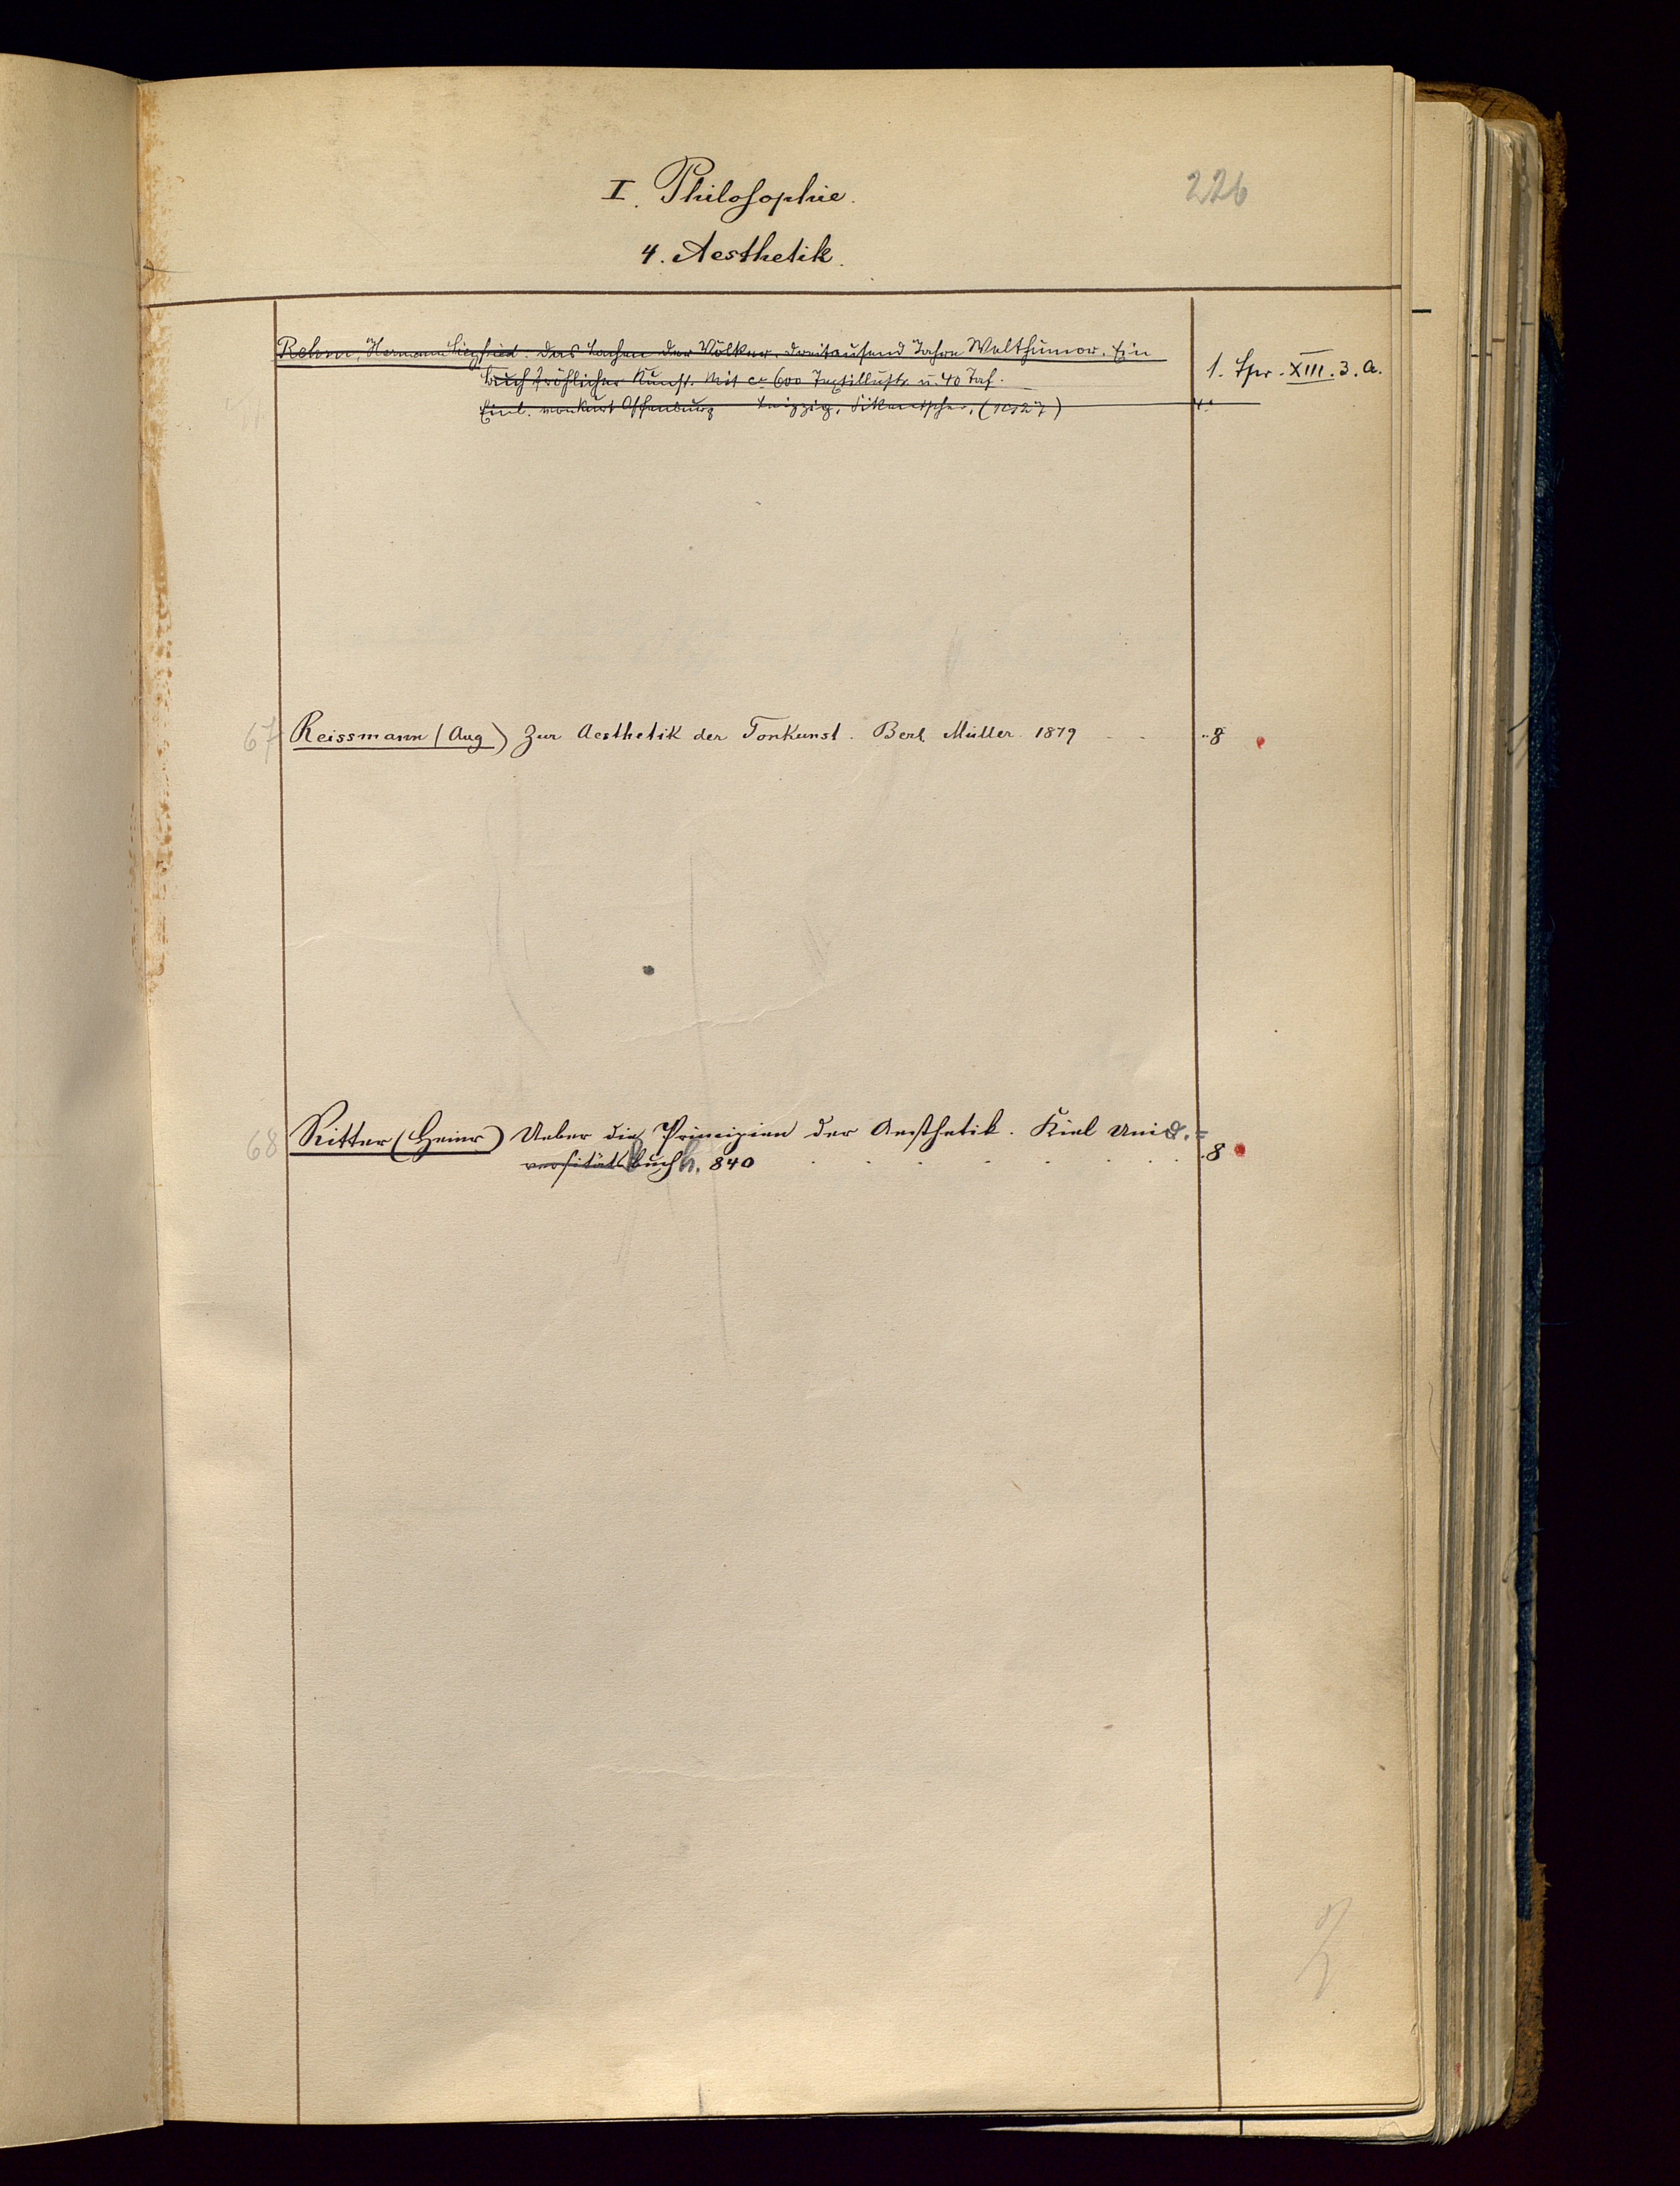 I. Philosophie.
226
4. Aesthetik.
Rehm, Hermann Siegfried. Das Lachen der Völker. Dreitausend Jahre Welthumor. Ein
Buch fröhlicher Kunst. Mit ca 600 Textillustr. u. 40 Taf.
1. Spr. XIII. 3. a.
Einl. von Kurt Offenburg Leipzig, Fikentscher, (1927)
4°
67
Reissmann (Aug) Zur Aesthetik der Tonkunst. Berl Müller 1879
8
68
Ritter (Heinr) Ueber die Principien der Aesthetik. Kiel Uni
versitäts buchh. 840
8